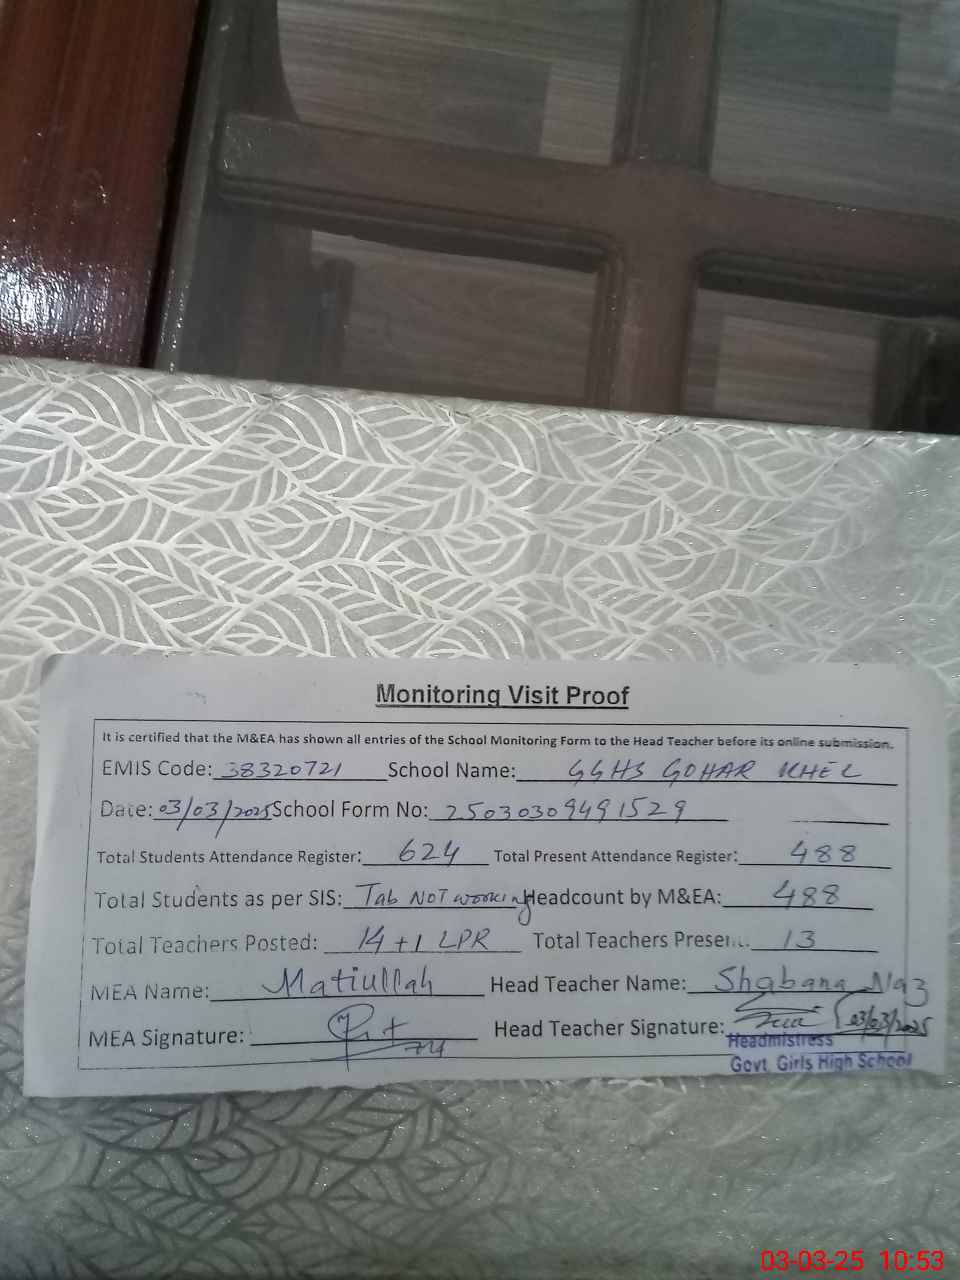 Monitoring Visit Proof
It is certified that the M&EA has shown all entries of the School Monitoring Form to the Head Teacher before its online submission.
EMIS Code: 38320721 School Name: GGHS GOHAR KHEL
Date: 03/03/2025 School Form No: 2503030949 1529
Total Students Attendance Register: 624 Total Present Attendance Register: 488
Total Students as per SIS: Tab NOT working Headcount by M&EA: 488
Total Teachers Posted: 14+1 LPR Total Teachers Present: 13
MEA Name: Matiullah Head Teacher Name: Shabana Naz
MEA Signature: Head Teacher Signature: 03/03/2025
Headmistress
Govt. Girls High School
03-03-25 10:53